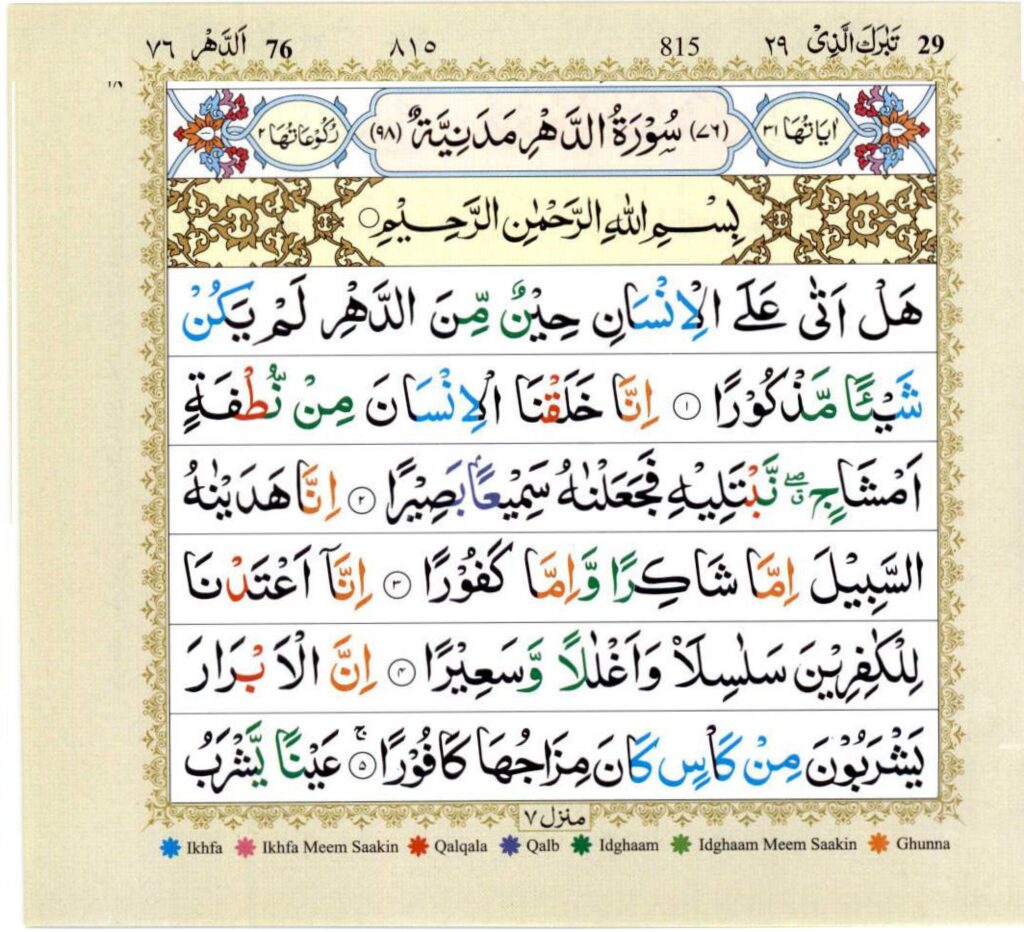 29 تَبٰرَكَ الَّذِىْ ٢٩ 815 ٨١٥ 76 اَلدَّهْر ٧٦
اٰيَاتُهَا ٣١ (٧٦) سُوْرَةُ الدَّهْرِ مَدَنِيَّةٌ (٩٨) رُكُوْعَاتُهَا ٢
بِسْمِ اللّٰهِ الرَّحْمٰنِ الرَّحِيْمِ
هَلْ اَتٰى عَلَى الْاِنْسَانِ حِيْنٌ مِّنَ الدَّهْرِ لَمْ يَكُنْ
شَيْئًا مَّذْكُوْرًا ١ اِنَّا خَلَقْنَا الْاِنْسَانَ مِنْ نُّطْفَةٍ
اَمْشَاجٍ ۖق نَّبْتَلِيْهِ فَجَعَلْنٰهُ سَمِيْعًۢا بَصِيْرًا ٢ اِنَّا هَدَيْنٰهُ
السَّبِيْلَ اِمَّا شَاكِرًا وَّاِمَّا كَفُوْرًا ٣ اِنَّآ اَعْتَدْنَا
لِلْكٰفِرِيْنَ سَلٰسِلَا۟ وَاَغْلٰلًا وَّسَعِيْرًا ٤ اِنَّ الْاَبْرَارَ
يَشْرَبُوْنَ مِنْ كَاْسٍ كَانَ مِزَاجُهَا كَافُوْرًا ۚ ٥ عَيْنًا يَّشْرَبُ
منزل ٧
Ikhfa Ikhfa Meem Saakin Qalqala Qalb Idghaam Idghaam Meem Saakin Ghunna